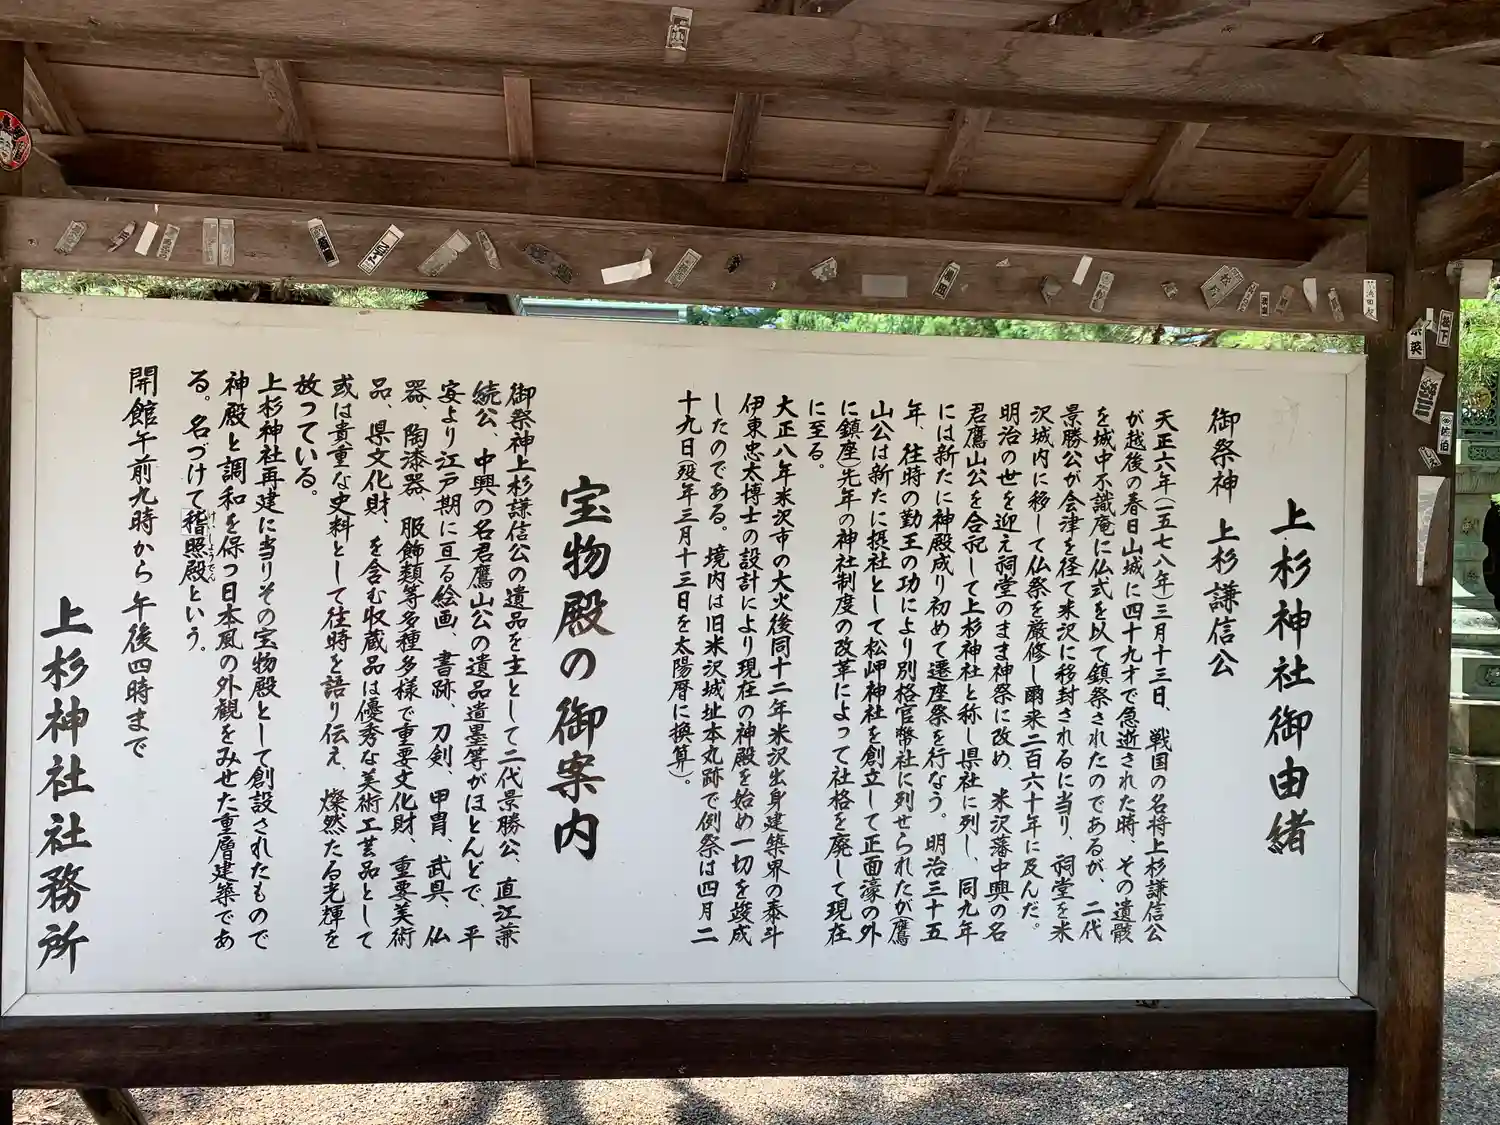 上杉神社御由緒
御祭神 上杉謙信公
天正六年(一五七八年)三月十三日、戦国の名将上杉謙信公
が越後の春日山城に四十九才で急逝された時、その遺骸
を城中不識庵に仏式を以て鎮祭されたのであるが、二代
景勝公が会津を径て米沢に移封されるに当り、祠堂を米
沢城内に移して仏祭を厳修し爾来二百六十年に及んだ。
明治の世を迎え祠堂のまま神祭に改め、米沢藩中興の名
君鷹山公を合祀して上杉神社と称し県社に列し、同九年
には新たに神殿成り初めて遷座祭を行なう。明治三十五
年、往時の勤王の功により別格官幣社に列せられたが(鷹
山公は新たに摂社として松岬神社を創立して正面濠の外
に鎮座)先年の神社制度の改革によって社格を廃して現在
に至る。
大正八年米沢市の大火後同十二年米沢出身建築界の泰斗
伊東忠太博士の設計により現在の神殿を始め一切を竣成
したのである。境内は旧米沢城址本丸跡で例祭は四月二
十九日(歿年三月十三日を太陽暦に換算)。
宝物殿の御案内
御祭神上杉謙信公の遺品を主として二代景勝公、直江兼
続公、中興の名君鷹山公の遺品遺墨等がほとんどで、平
安より江戸期に亘る絵画、書跡、刀剣、甲冑、武具、仏
器、陶漆器、服飾類等多種多様で重要文化財、重要美術
品、県文化財、を含む収蔵品は優秀な美術工芸品として
或は貴重な史料として往時を語り伝え、燦然たる光輝を
放っている。
上杉神社再建に当りその宝物殿として創設されたもので
神殿と調和を保つ日本風の外観をみせた重層建築であ
る。名づけて稽照殿という。
けいしょうでん
開館午前九時から午後四時まで
上杉神社社務所